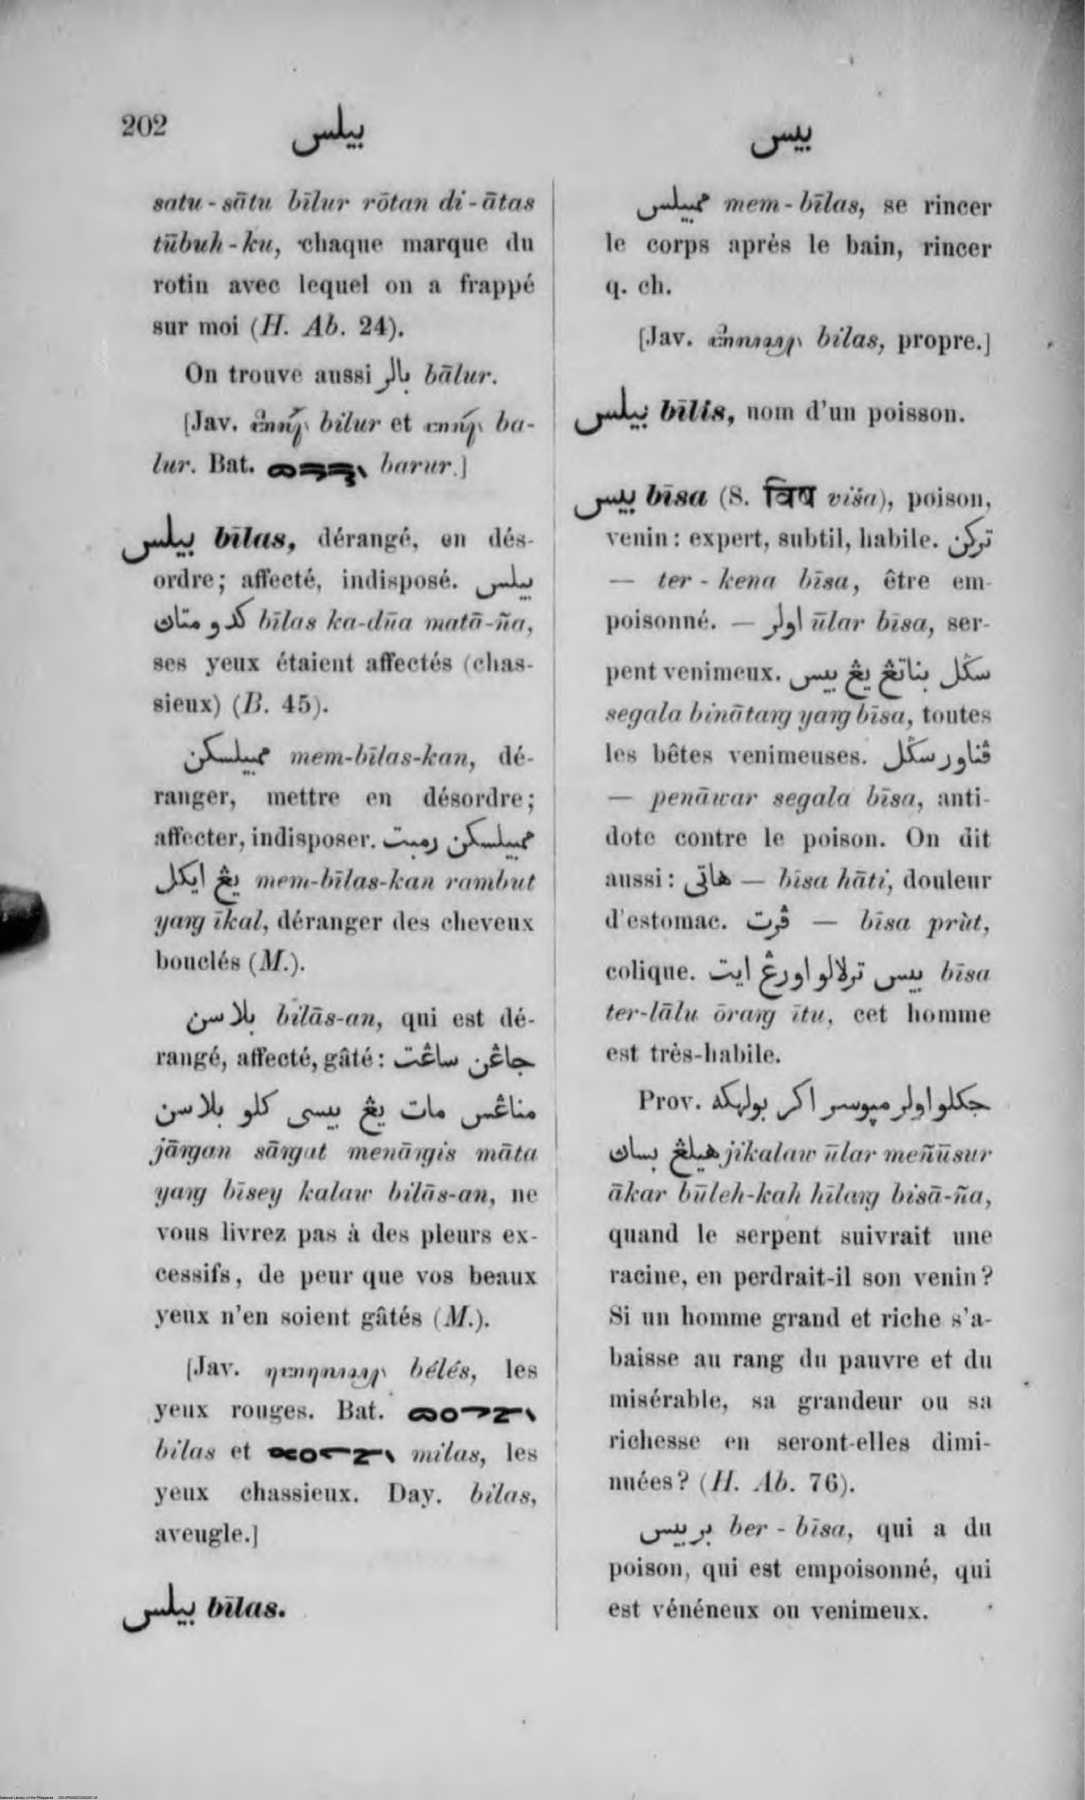 202
بيلس
بيس
satu-sātu bīlur rōtan di-ātas
tūbuh-ku, chaque marque du
rotin avec lequel on a frappé
sur moi (H. Ab. 24).
On trouve aussi بالر bālur.
[Jav. bilur et ba-
lur. Bat. barur.]
بيلس bīlas, dérangé, en dés-
ordre; affecté, indisposé. بيلس
كدو متاڽ bīlas ka-dūa matā-ña,
ses yeux étaient affectés (chas-
sieux) (B. 45).
ممبيلسكن mem-bīlas-kan, dé-
ranger, mettre en désordre;
affecter, indisposer. ممبيلسكن رمبت
يڠ ايكل mem-bīlas-kan rambut
yaŋ īkal, déranger des cheveux
bouclés (M.).
بلاسن bilās-an, qui est dé-
rangé, affecté, gâté: جاڠن ساڠت
مناڠس مات يڠ بيسي كلو بلاسن
jāŋan sāŋat menāŋis māta
yaŋ bīsey kalaw bilās-an, ne
vous livrez pas à des pleurs ex-
cessifs, de peur que vos beaux
yeux n'en soient gâtés (M.).
[Jav. bélés, les
yeux rouges. Bat.
bilas et milas, les
yeux chassieux. Day. bilas,
aveugle.]
بيلس bīlas.
ممبيلس mem-bīlas, se rincer
le corps après le bain, rincer
q. ch.
[Jav. bilas, propre.]
بيلس bīlis, nom d'un poisson.
بيس bīsa (S. विष viša), poison,
venin: expert, subtil, habile. تركن
— ter-kena bīsa, être em-
poisonné. — اولر ūlar bīsa, ser-
pent venimeux. سڬل بناتڠ يڠ بيس
segala binātaŋ yaŋ bīsa, toutes
les bêtes venimeuses. ڤناور سڬل
— penāwar segala bīsa, anti-
dote contre le poison. On dit
aussi: هاتي — bīsa hāti, douleur
d'estomac. ڤرت — bīsa prùt,
colique. بيس ترلالو اورڠ ايت bīsa
ter-lālu ōraŋ ītu, cet homme
est très-habile.
Prov. جكلو اولر ميوسر اكر بولهكه
هيلڠ بساڽ jikalaw ūlar meñūsur
ākar būleh-kah hīlaŋ bisā-ña,
quand le serpent suivrait une
racine, en perdrait-il son venin?
Si un homme grand et riche s'a-
baisse au rang du pauvre et du
misérable, sa grandeur ou sa
richesse en seront-elles dimi-
nuées? (H. Ab. 76).
بربيس ber-bīsa, qui a du
poison, qui est empoisonné, qui
est vénéneux ou venimeux.
National Library of the Philippines